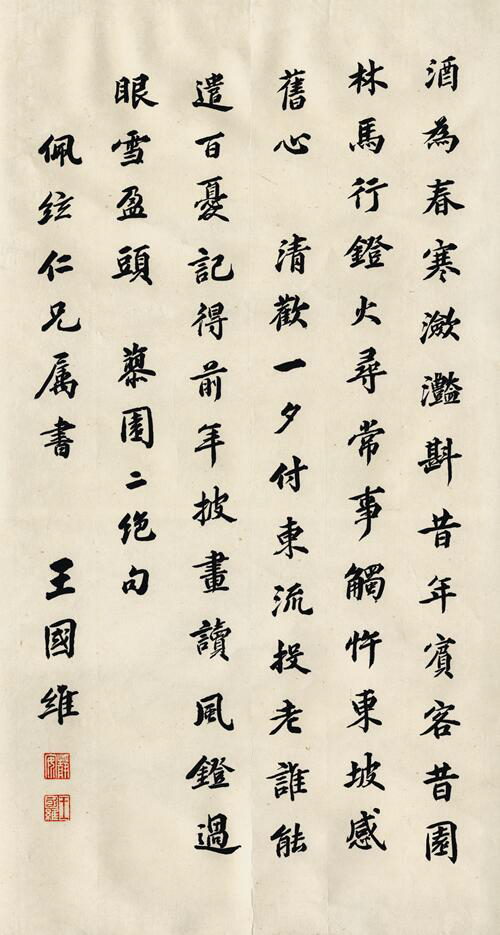 酒為春寒瀲灩斟昔年賓客昔園
林馬行鐙火尋常事觸忤東坡感
舊心 清歡一夕付東流投老誰能
遣百憂記得前年披畫讀風鐙過
眼雪盈頭 園二绝句
佩絃仁兄属書 王國維
靜安
王國維